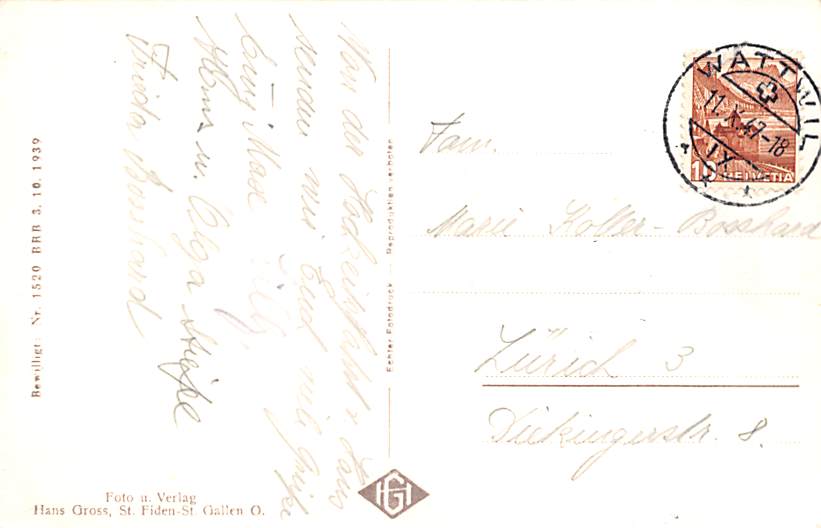 Von der Hochzeitsfahrt v. Hans
senden wir Euch viele Grüsse
Hans u. Olga
Frieda Bosshard
Fam.
Marie Koller-Bosshard
Zürich 3
8.
WATTWIL
11.X.47-18
10 HELVETIA
Echter Fotodruck — Reproduktion verboten
Bewilligt: Nr. 1520 BRB 3. 10. 1939
Foto u. Verlag
Hans Gross, St. Fiden-St. Gallen O.
HG